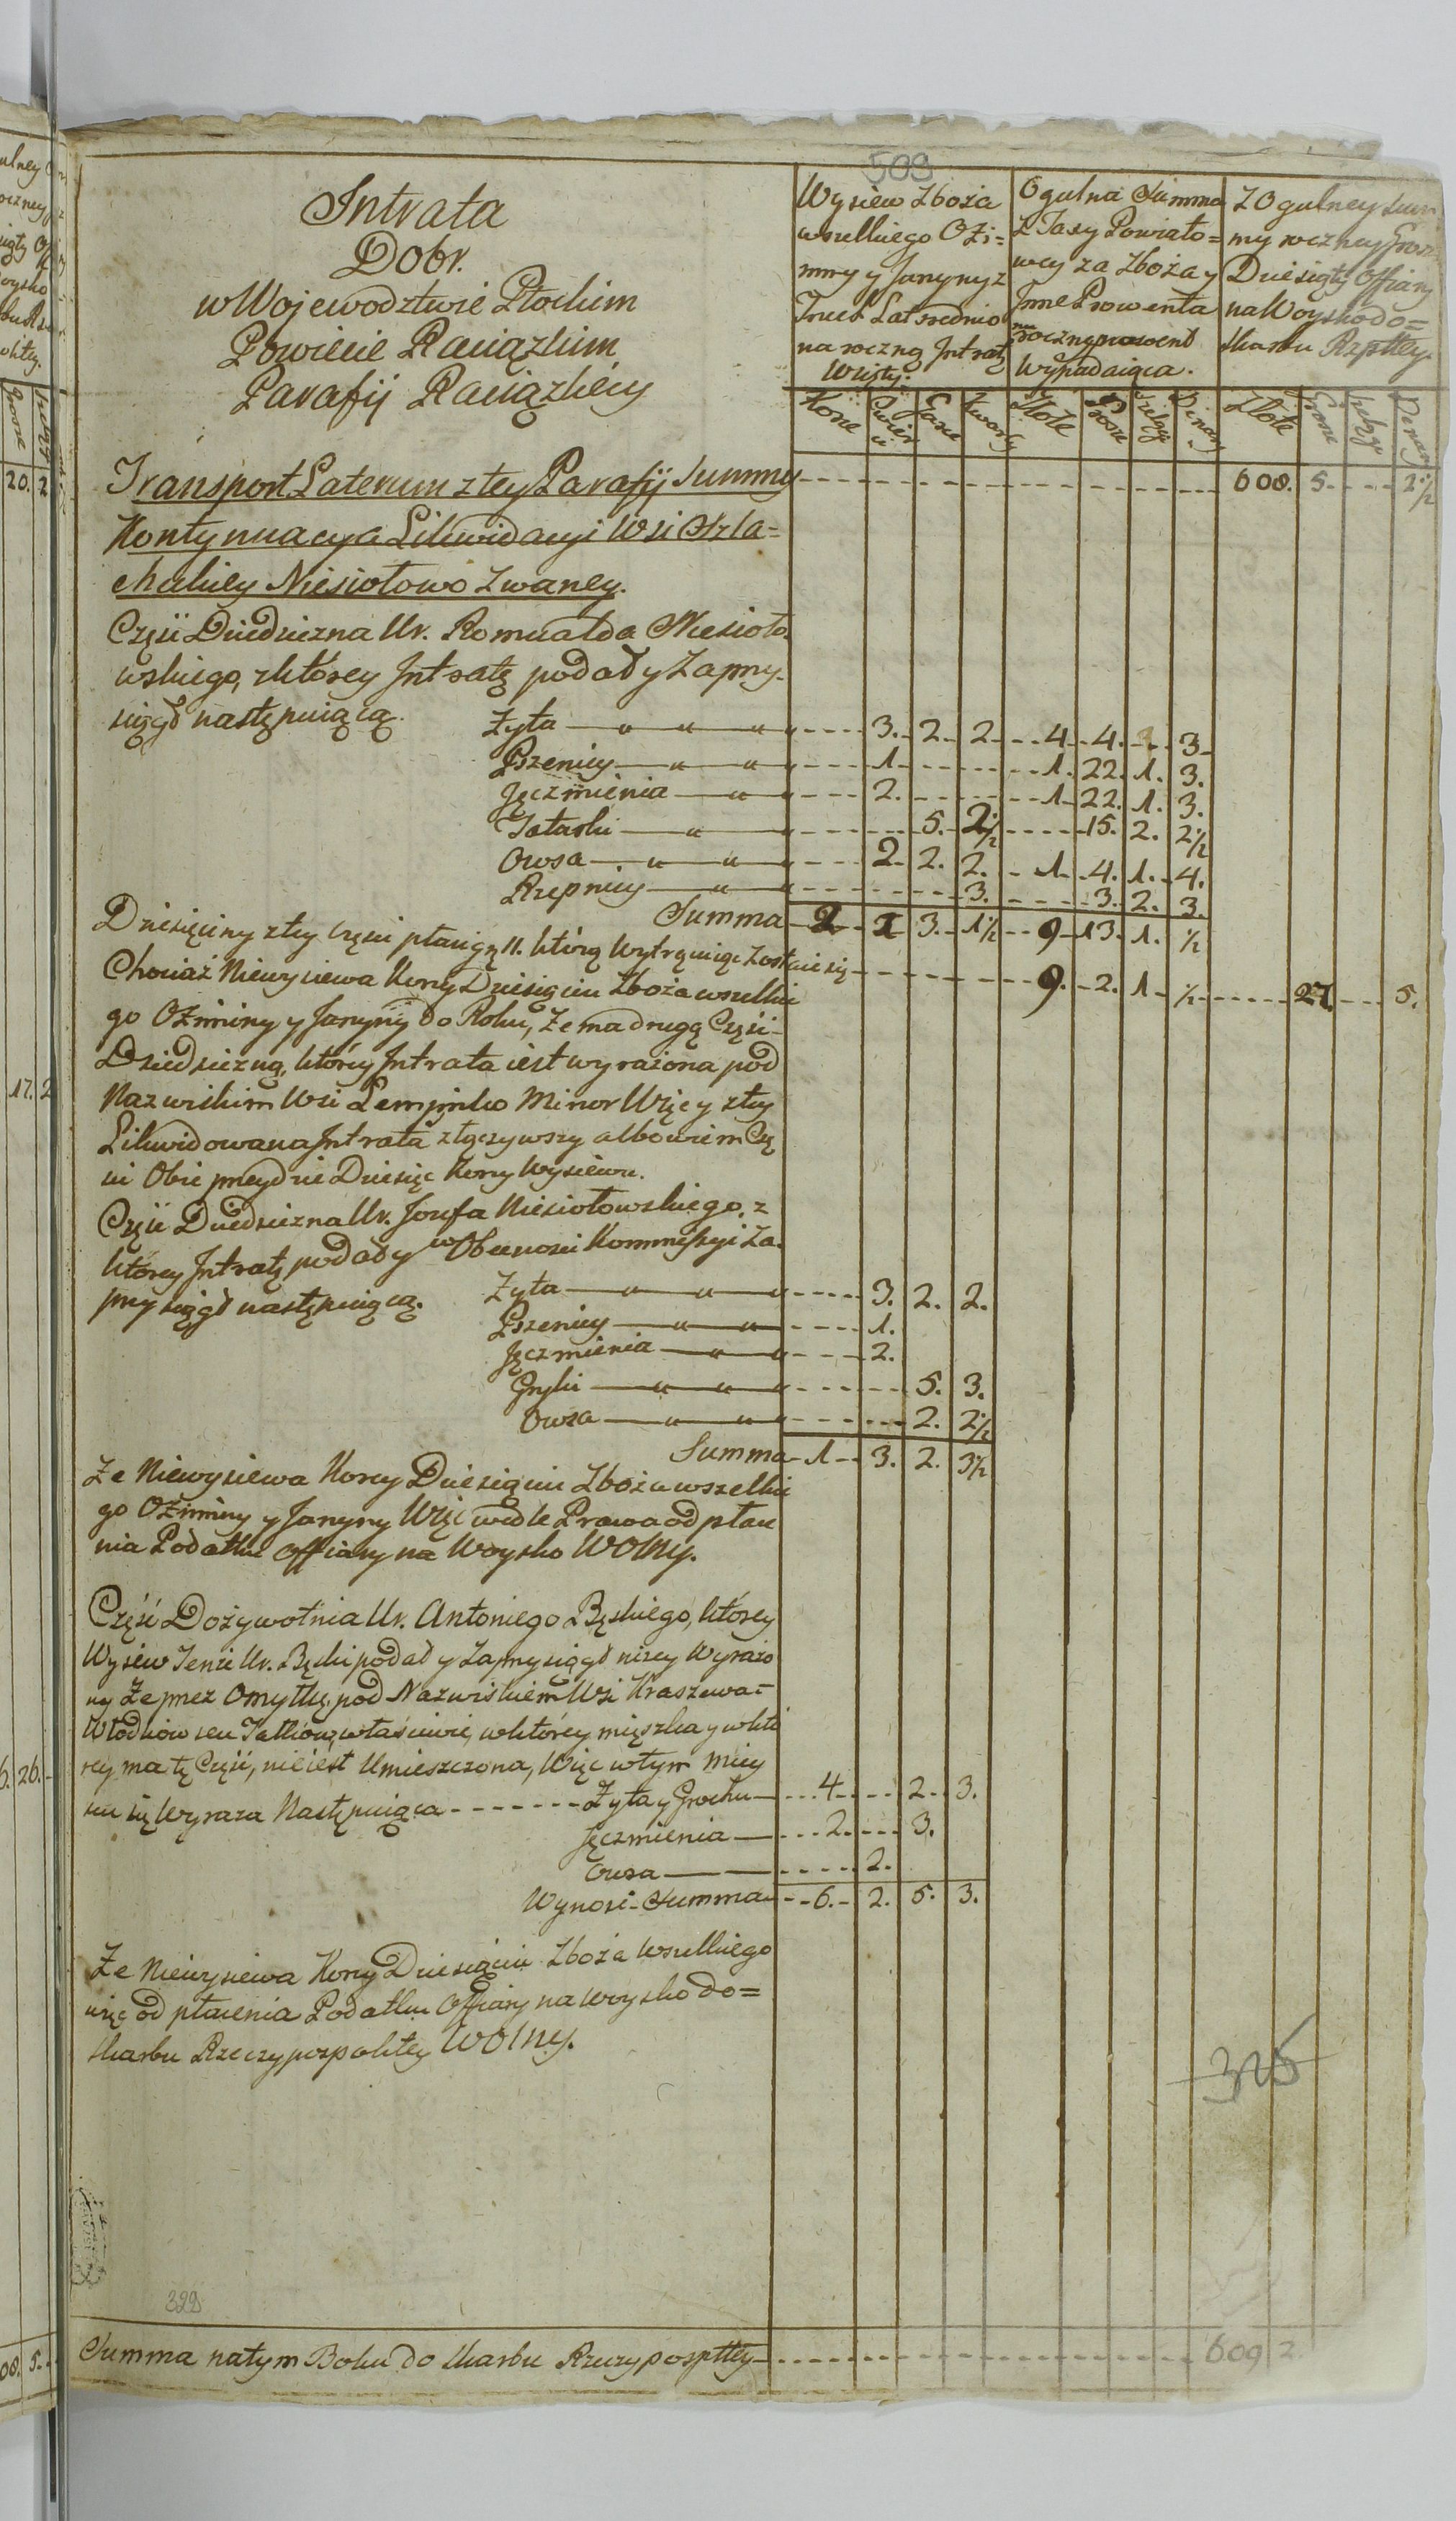 509
Intrata
Dobr.
w Wojewodztwie Płockim
Powiecie Raciązkim
Parafij Raciązkiey
Wysiew Zboża
wszelkiego Ozi=
miny y Jarzyny z
Trzech Lat srednio
na roczną Intratę
Wzięty.
Ogulna Summa
z Taxy Powiato=
wey za Zboża y
Inne Prowenta
na roczny prowent
Wypadaiąca.
Z Ogulney Sum
my roczney Grosz
Dziesięty Offiary
na Woysko do=
Skarbu Rzptley.
Korce Cwierci Garce Kwarty Złote Grosze Szelągi Denary Złote Grosze Szelągi Denary
Transport Laterum z tey Parafij Summy 608. 5 2½
Kontynuacya Likwidacyi Wsi Szla=
checkiey Niesiołowo zwaney.
Częsć Dziedziczna Ur. Romualda Niesioło
wskiego, z ktorey Intratę podał y Zaprzy-
siągł następuiącą.
Zyta 3. 2. 2 4. 4. 3
Pszenicy 1 1. 22. 1. 3.
Jęczmienia 2. 1 22. 1. 3.
Tatarki 5. 2½ 15. 2. 2½
Owsa 2 2. 2. 1 4. 1. 4.
Rzepnicy 3. 3. 2. 3.
Summa 2 1 3. 1½ 9 13. 1. ½
Dziesięciny z tey Częsci płaci gr. 11. którą Wytrąciwszy zostaie się 9. 2. 1 ½ 27. 5.
Chociaż Niewysiewa Korcy Dziesięciu Zboża wszelkie
go Oziminy y Jarzyny do Roku, Że ma drugą Częsć
Dziedziczną, ktorey Intrata iest wyrażona pod
Nazwiskiem Wsi Lempinko Minor Więc y z tey
Likwidowana Intrata złączywszy albowiem Czę
sci Obie przeydzie Dziesięć Korcy Wysiewu.
Częsć Dziedziczna Ur. Jozefa Niesiołowskiego, z
ktorey Intratę podał y w Obecnosci Kommissyi Za
przysiągł następuiącą.
Zyta 3. 2. 2.
Pszenicy 1.
Jęczmienia 2.
Gryki 5. 3.
Owsa 2. 2½
Summa 1 3. 2. 3½
Ze Niewysiewa Korcy Dziesięciu Zboża wszelkie
go Oziminy y Jarzyny Więc wedle Prawa od płace
nia Podatku Offiary na Woysko Wolny.
Częsć Dożywotnia Ur. Antoniego Bęskiego, ktorey
Wysiew Tenże Ur. Bęski podał y Zaprzysiągł niżey Wyrażo
ny Że przez Omyłkę, pod Nazwiskiem Wsi Kraszewa=
właściwie, w ktorey mięszka y w kto
rey ma tę Częsć, nie iest Umieszczona, Więc w tym Miey
scu się Wyraża Następuiąca
Zyta y Grochu 4 2. 3.
Jęczmienia 2. 3.
Owsa 2.
Wynosi Summa 6. 2. 5. 3.
Że Niewysiewa Korcy Dziesięciu Zboża Wszelkiego
więc od płacenia Podatku Offiary na woysko do=
Skarbu Rzeczypospolitey Wolny.
325
329
Summa na tym Boku do Skarbu Rzeczyposptley 609 2.